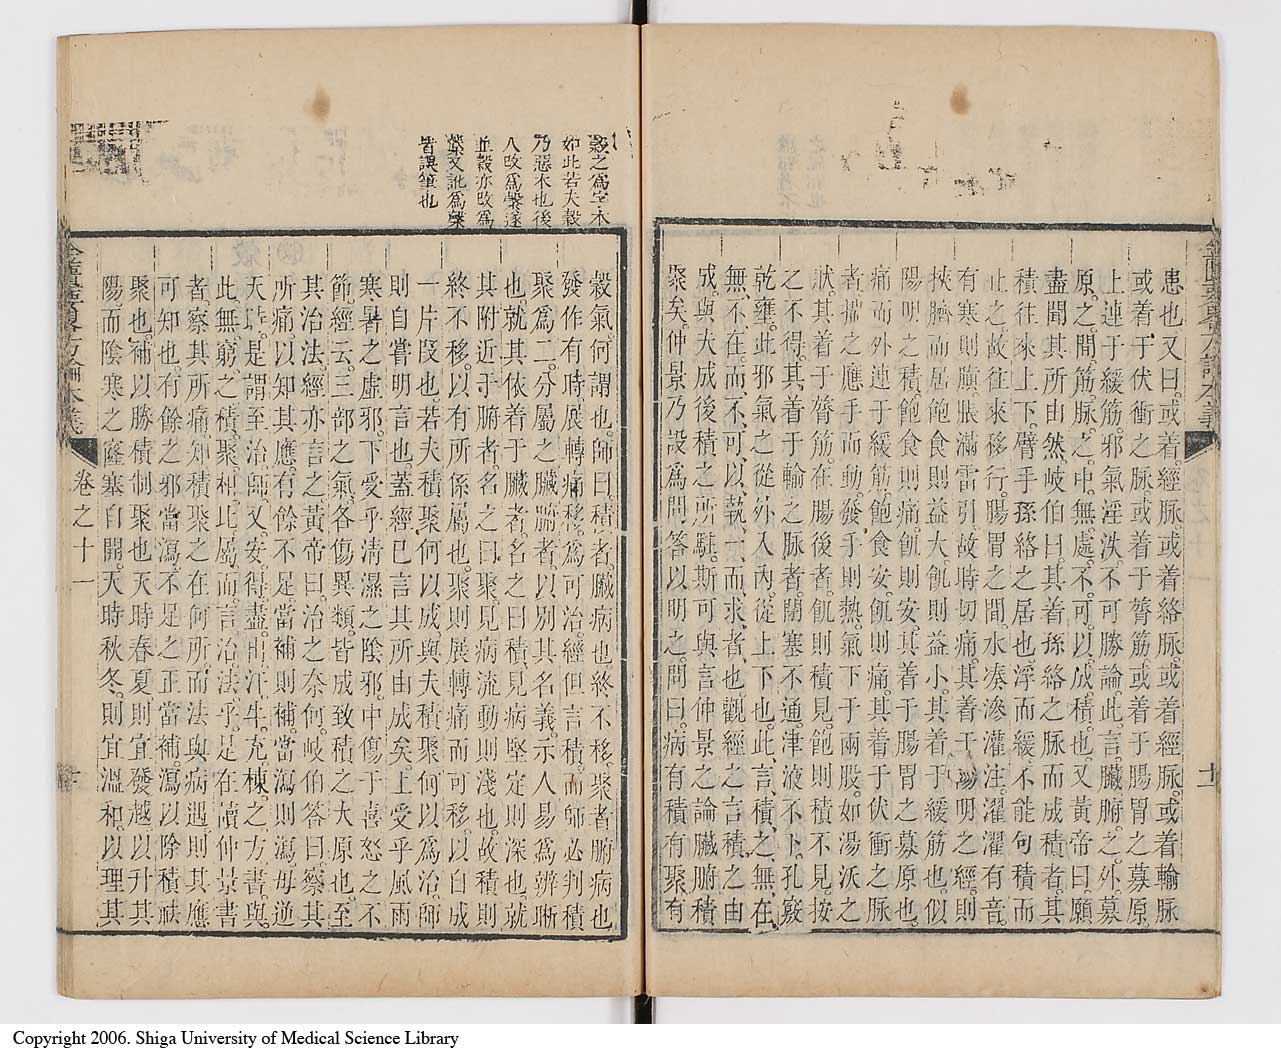 患也又曰。或着經脈或着絡脈。或着經脈。或着輸脈
或着于伏衝之脈或着于膂筋或着于腸胃之募原。
上連于緩筋。邪氣淫泆不可勝論。此言臟腑之外。募
原之間。筋脈之中。無處不可以成積也。又黃帝曰。願
盡聞其所由然。岐伯曰。其着孫絡之脈而成積者。其
積往來上下。臂手孫絡之居也。浮而緩。不能句積而
止之。故往來移行。腸胃之間。水湊滲灌注。濯濯有音。
有寒則䐜䐜脹滿雷引。故時切痛。其着于陽明之經。則
挾臍而居。飽食則益大。飢則益小。其着于緩筋也。似
陽明之積。飽食則痛。飢則安。其着于腸胃之募原也。
痛而外連于緩筋。飽食安。飢則痛。其着于伏衝之脈
者。揣之應手而動。發手則熱氣下于兩股。如湯沃之
狀。其着于膂筋。在腸後者。飢則積見。飽則積不見。按
之不得。其着于輸之脈者。閉塞不通。津液不下。孔竅
乾壅。此邪氣之從外入內。從上下也。此言積之無在
無不在。而不可以執一而求者也。觀經之言積之由
成。與夫成後積之所駐。斯可與言仲景之論臟腑積
聚矣。仲景乃設爲問答以明之。問曰。病有積有聚有
十一
穀之爲字木
如此若夫穀
乃惡木也後
人改爲槃遂
並穀亦改爲
皆誤筆也
穀氣。何謂也。師曰。積者。臟病也。終不移。聚者腑病也
發作有時。展轉痛移。爲可治。經但言積。而師必判積
聚爲二。分屬之臟腑者。以別其名義。示人易爲辨晰
也。就其依着于臟者。名之曰積。見病堅定則深也。就
其附近于腑者。名之曰聚。見病流動則淺也。故積則
終不移。以有所係屬也。聚則展轉痛而可移。以自成
一片段也。若夫積聚何以成。與夫積聚何以爲治。師
則自嘗明言也。蓋經已言其所由成矣。上受乎風雨
寒暑之虛邪。下受乎淸濕之陰邪。中傷于喜怒之不
節。經云。三部之氣。各傷異類。皆成致積之大原也。至
其治法。經亦言之。黃帝曰。治之奈何。岐伯答曰。察其
所痛。以知其應。有餘不足。當補則補。當瀉則瀉。毋逆
天時。是謂至治。師又安得盡出汗牛充棟之方書。與
此無窮之積聚相比屬。而言治法乎。是在讀仲景書
者。察其所痛。知積聚之在何所。而法與病遇。則其應
可知也。有餘之邪當瀉。不足之正當補。瀉以除積祛
聚也。補以勝積制聚也。天時春夏。則宜發越。以升其
陽而陰寒之窿塞自開。天時秋冬。則宜溫和。以理其
金匱要略方論本義
卷之十一
Copyright 2006. Shiga University of Medical Science Library